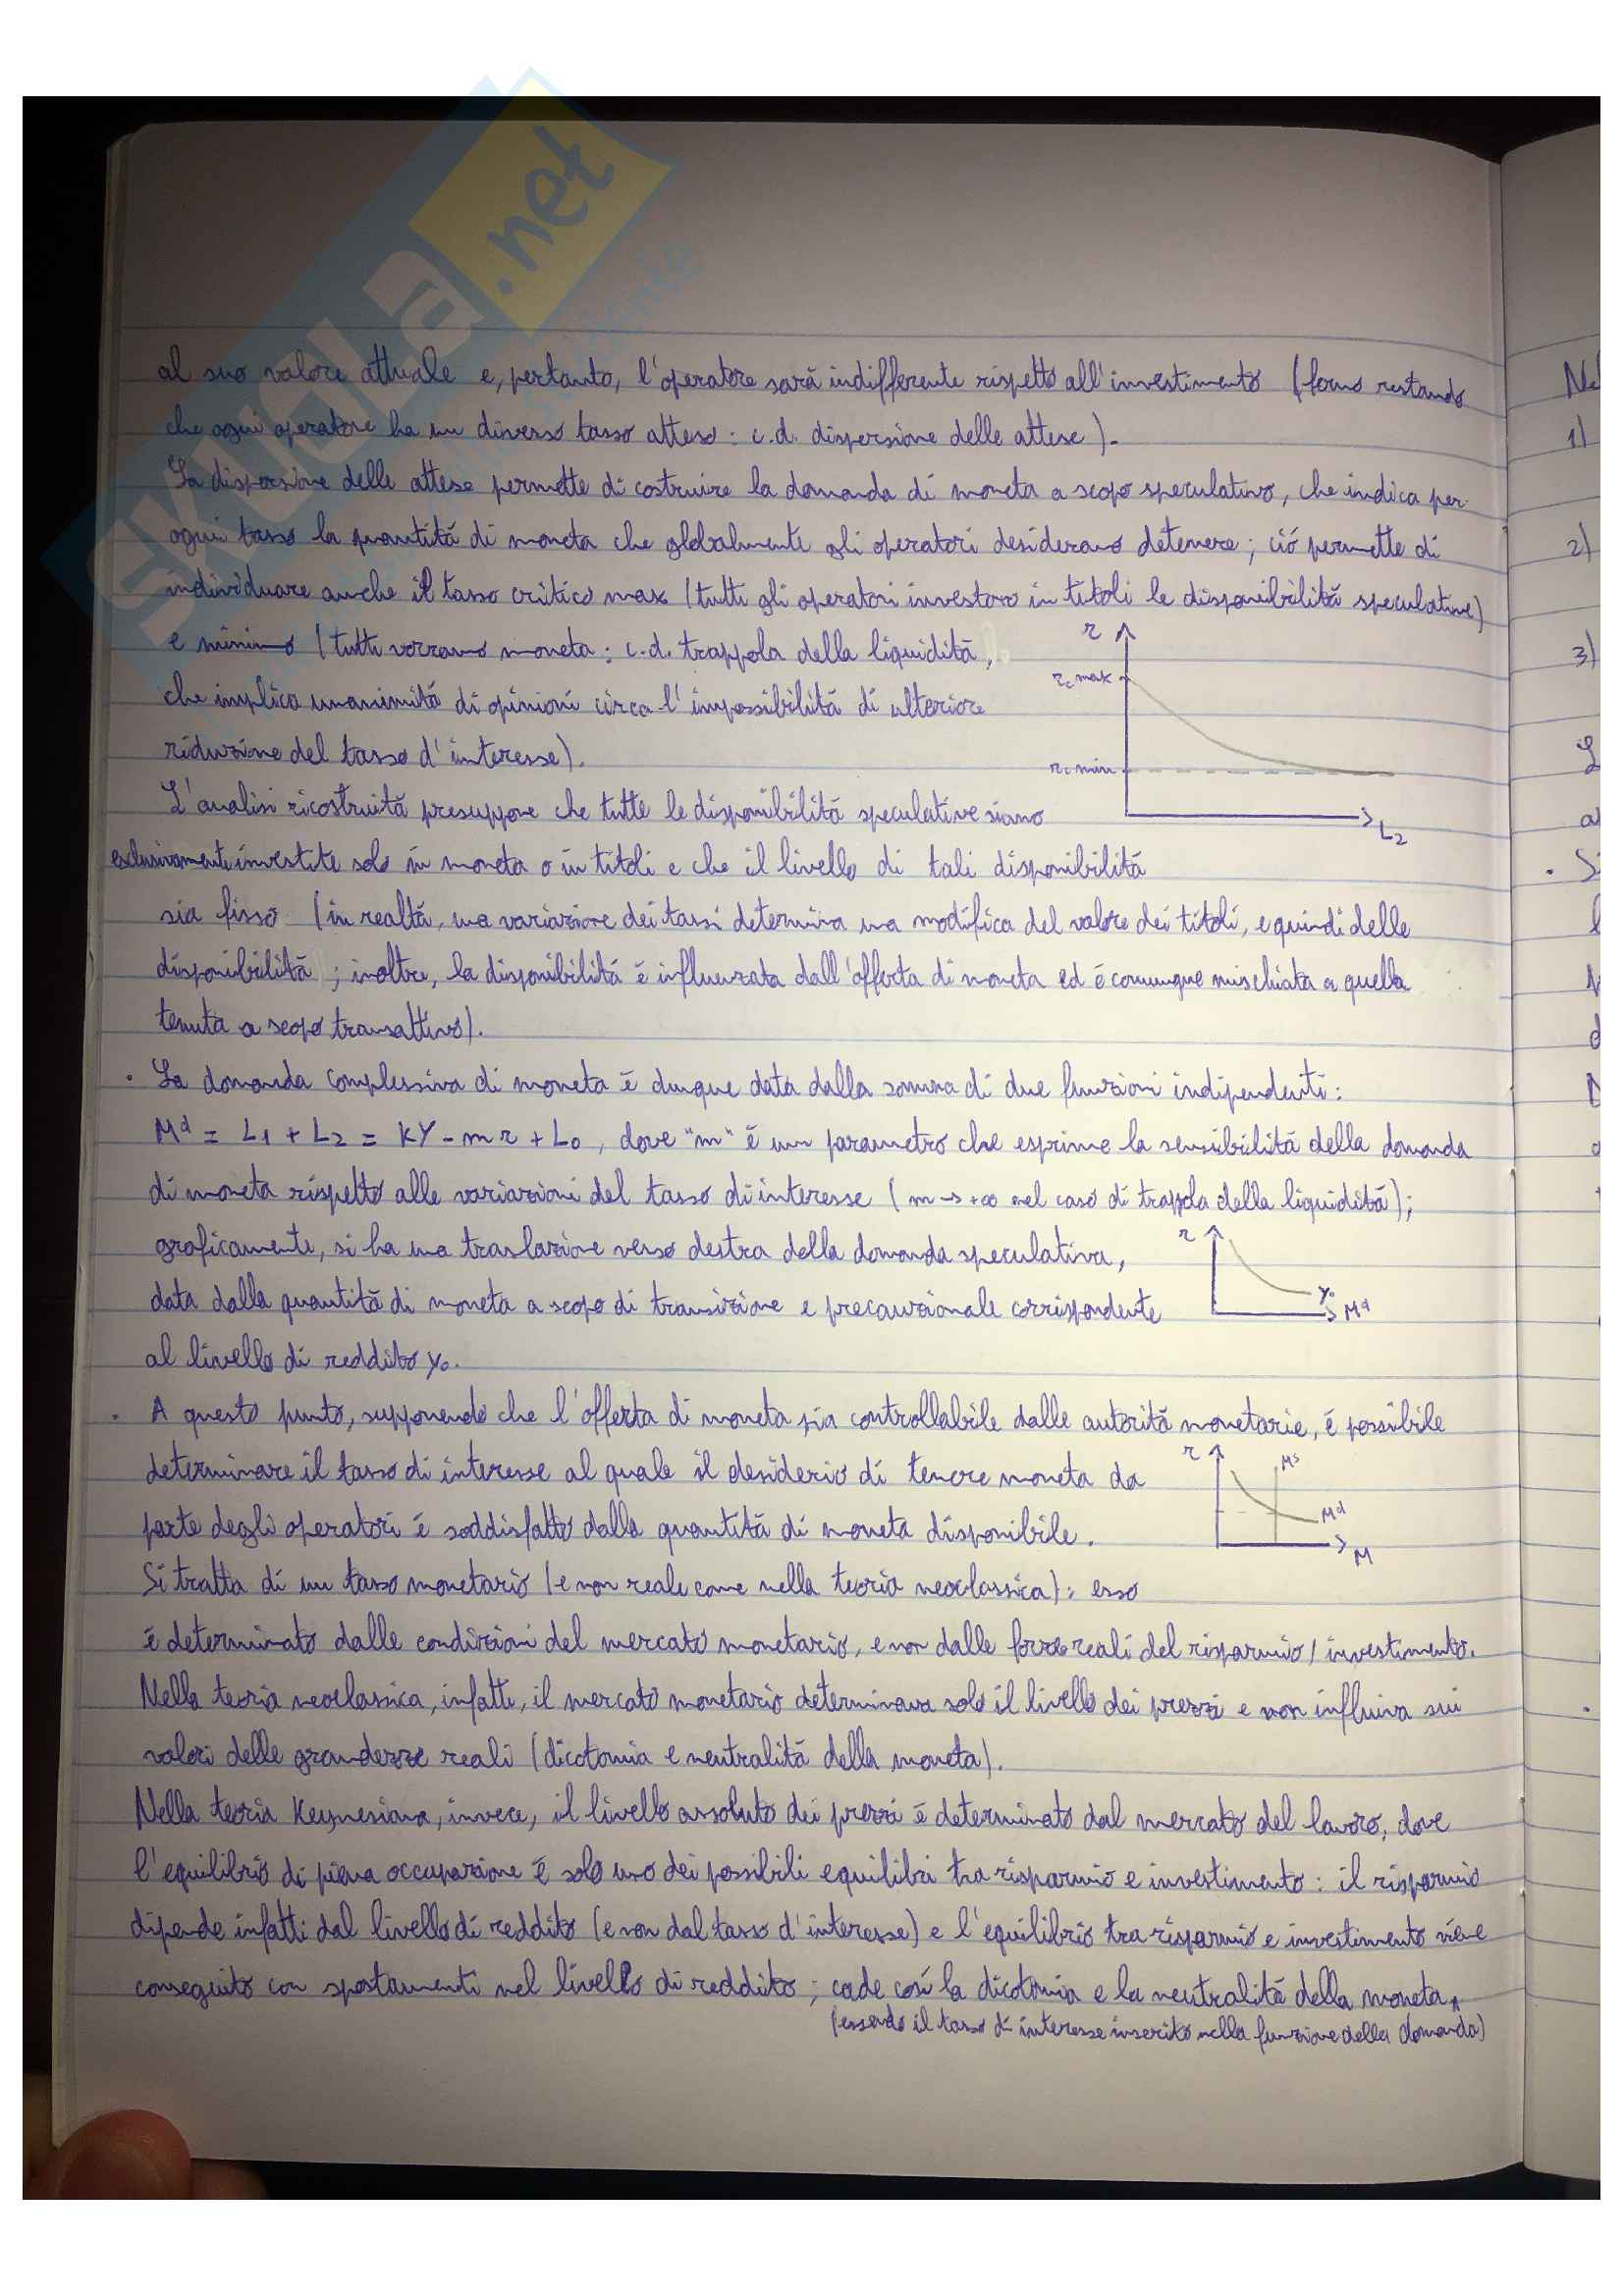 SKUOLA.net
al suo valore attuale e, pertanto, l'operatore sará indifferente rispetto all'investimento (fermo restando
che ogni operatore ha un diverso tasso atteso: c.d. dispersione delle attese).
La dispersione delle attese permette di costruire la domanda di moneta a scopo speculativo, che indica per
ogni tasso la quantitá di moneta che globalmente gli operatori desiderano detenere; ció permette di
individuare anche il tasso critico max (tutti gli operatori investono in titoli le disponibilitá speculative)
e minimo (tutti vorranno moneta: c.d. trappola della liquiditá,
che implica unanimitá di opinioni circa l'impossibilitá di ulteriore
riduzione del tasso d'interesse).
r
rc max
rc min
L2
L'analisi ricostruitá presuppone che tutte le disponibilitá speculative siano
esclusivamente investite solo in moneta o in titoli e che il livello di tali disponibilitá
sia fisso (in realtá, una variazione dei tassi determina una modifica del valore dei titoli, e quindi delle
disponibilitá; inoltre, la disponibilitá é influenzata dall'offerta di moneta ed é comunque mischiata a quella
tenuta a scopo transattivo).
· La domanda complessiva di moneta é dunque data dalla somma di due funzioni indipendenti:
Md = L1 + L2 = KY - mr + L0, dove "m" é un parametro che esprime la sensibilitá della domanda
di moneta rispetto alle variazioni del tasso di interesse (m → +∞ nel caso di trappola della liquiditá);
graficamente, si ha una traslazione verso destra della domanda speculativa,
data dalla quantitá di moneta a scopo di transizione e precauzionale corrispondente
al livello di reddito y0.
r
y0
Md
· A questo punto, supponendo che l'offerta di moneta sia controllabile dalle autoritá monetarie, é possibile
determinare il tasso di interesse al quale il desiderio di tenere moneta da
parte degli operatori é soddisfatto dalla quantitá di moneta disponibile.
r
Ms
Md
M
Si tratta di un tasso monetario (e non reale come nella teoria neoclassica): esso
é determinato dalle condizioni del mercato monetario, e non dalle forze reali del risparmio/investimento.
Nella teoria neoclassica, infatti, il mercato monetario determinava solo il livello dei prezzi e non influiva sui
valori delle grandezze reali (dicotomia e neutralitá della moneta).
Nella teoria Keynesiana, invece, il livello assoluto dei prezzi é determinato dal mercato del lavoro, dove
l'equilibrio di piena occupazione é solo uno dei possibili equilibri tra risparmio e investimento: il risparmio
dipende infatti dal livello di reddito (e non dal tasso d'interesse) e l'equilibrio tra risparmio e investimento viene
conseguito con spostamenti nel livello di reddito; cade cosí la dicotomia e la neutralitá della moneta
(essendo il tasso di interesse inserito nella funzione della domanda)
1)
2)
3)